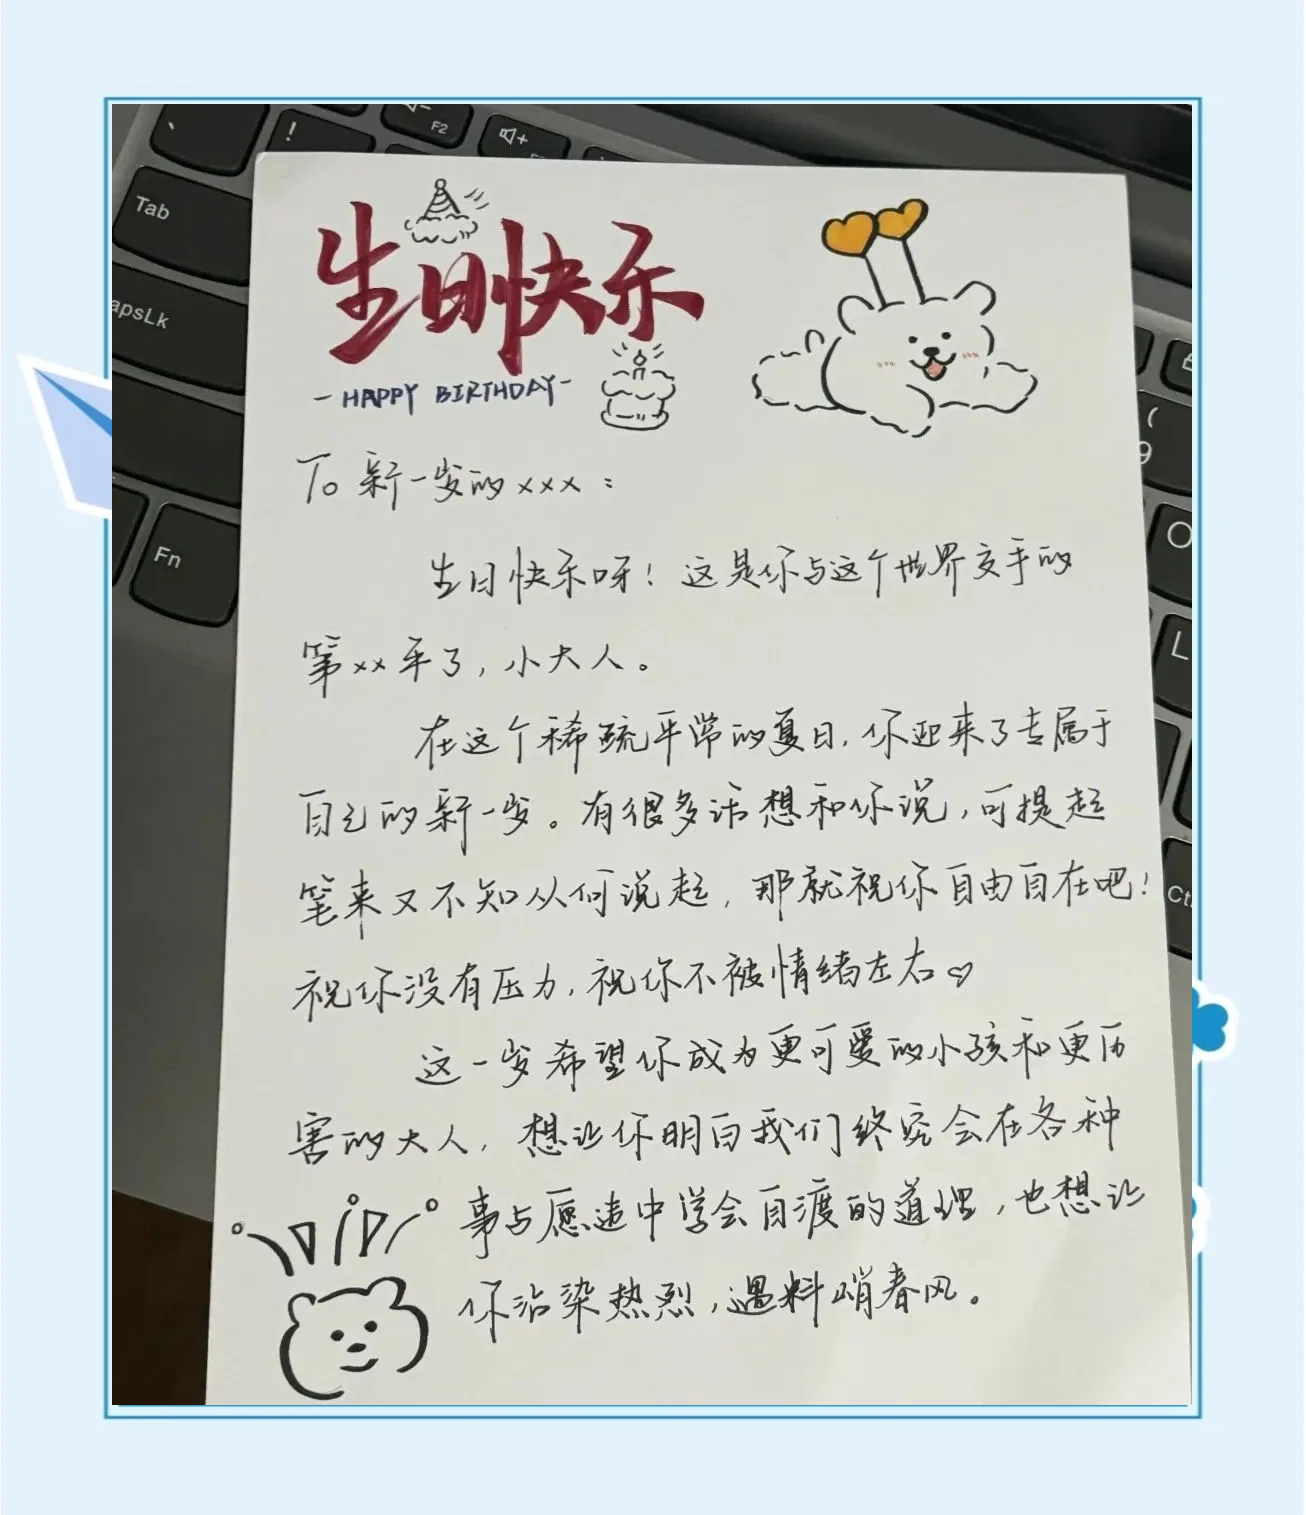 `
!
F2
Tab
apsLk
Fn
(
9
O
L
Ct
生日快乐
-HAPPY BIRTHDAY-
To 新一岁的xxx：
生日快乐呀！这是你与这个世界交手的
第xx年了，小大人。
在这个稀疏平常的夏日，你迎来了专属于
自己的新一岁。有很多话想和你说，可提起
笔来又不知从何说起，那就祝你自由自在吧！
祝你没有压力，祝你不被情绪左右♡
这一岁希望你成为更可爱的小孩和更历
害的大人，想让你明白我们终究会在各种
事与愿违中学会自渡的道理，也想让
你沾染热烈，遇料峭春风。